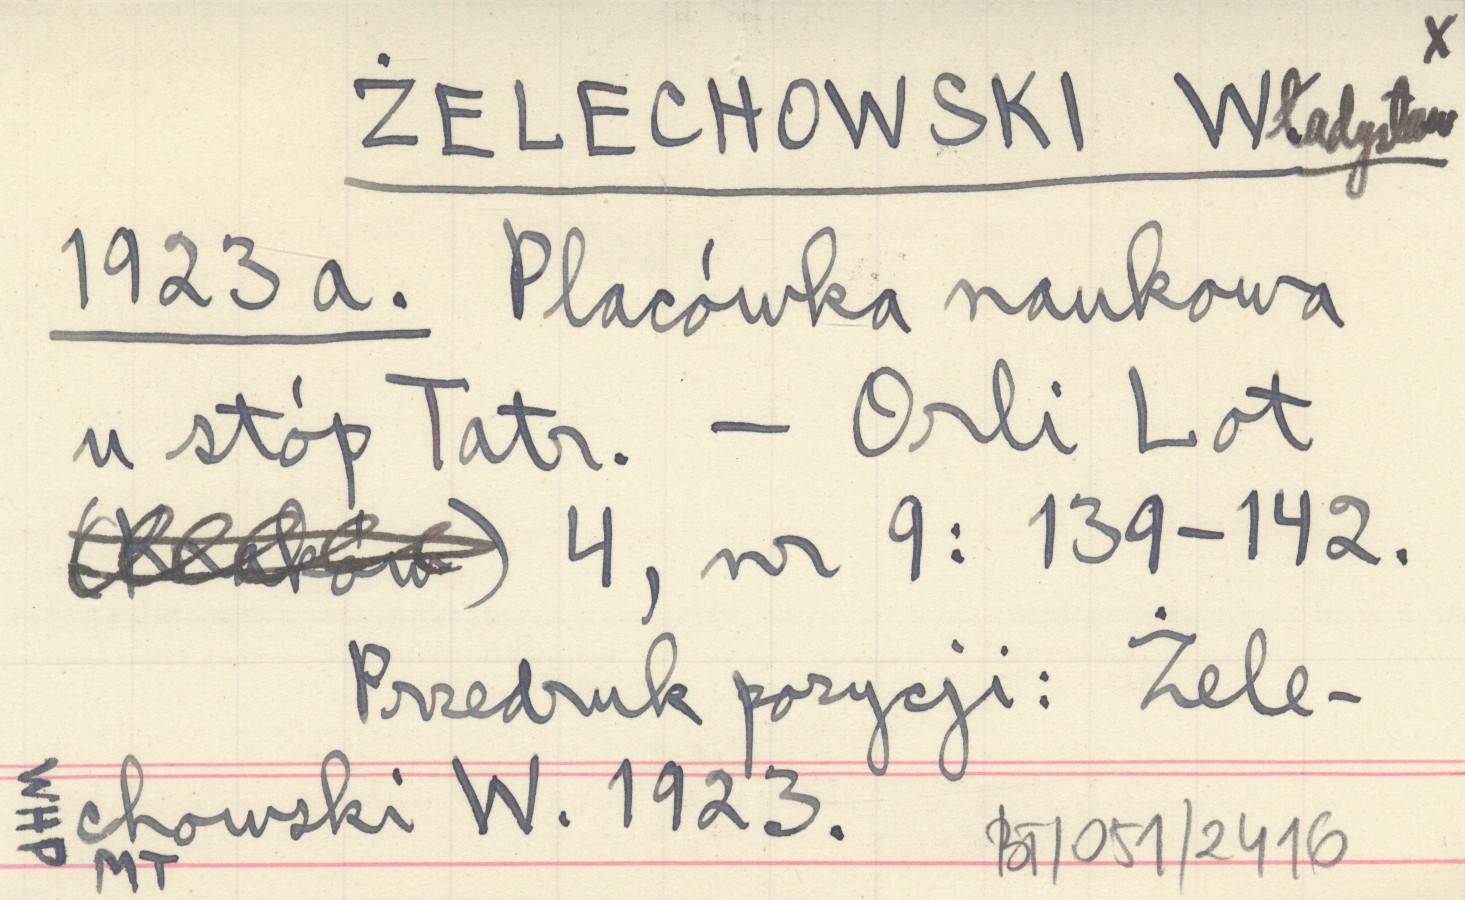 x
ŻELECHOWSKI Władysław
1923a. Placówka naukowa
u stóp Tatr. – Orli Lot
(Kraków) 4, nr 9: 139–142.
Przedruk pozycji: Żele-
chowski W. 1923.
WHP
MT
BT/051/2416